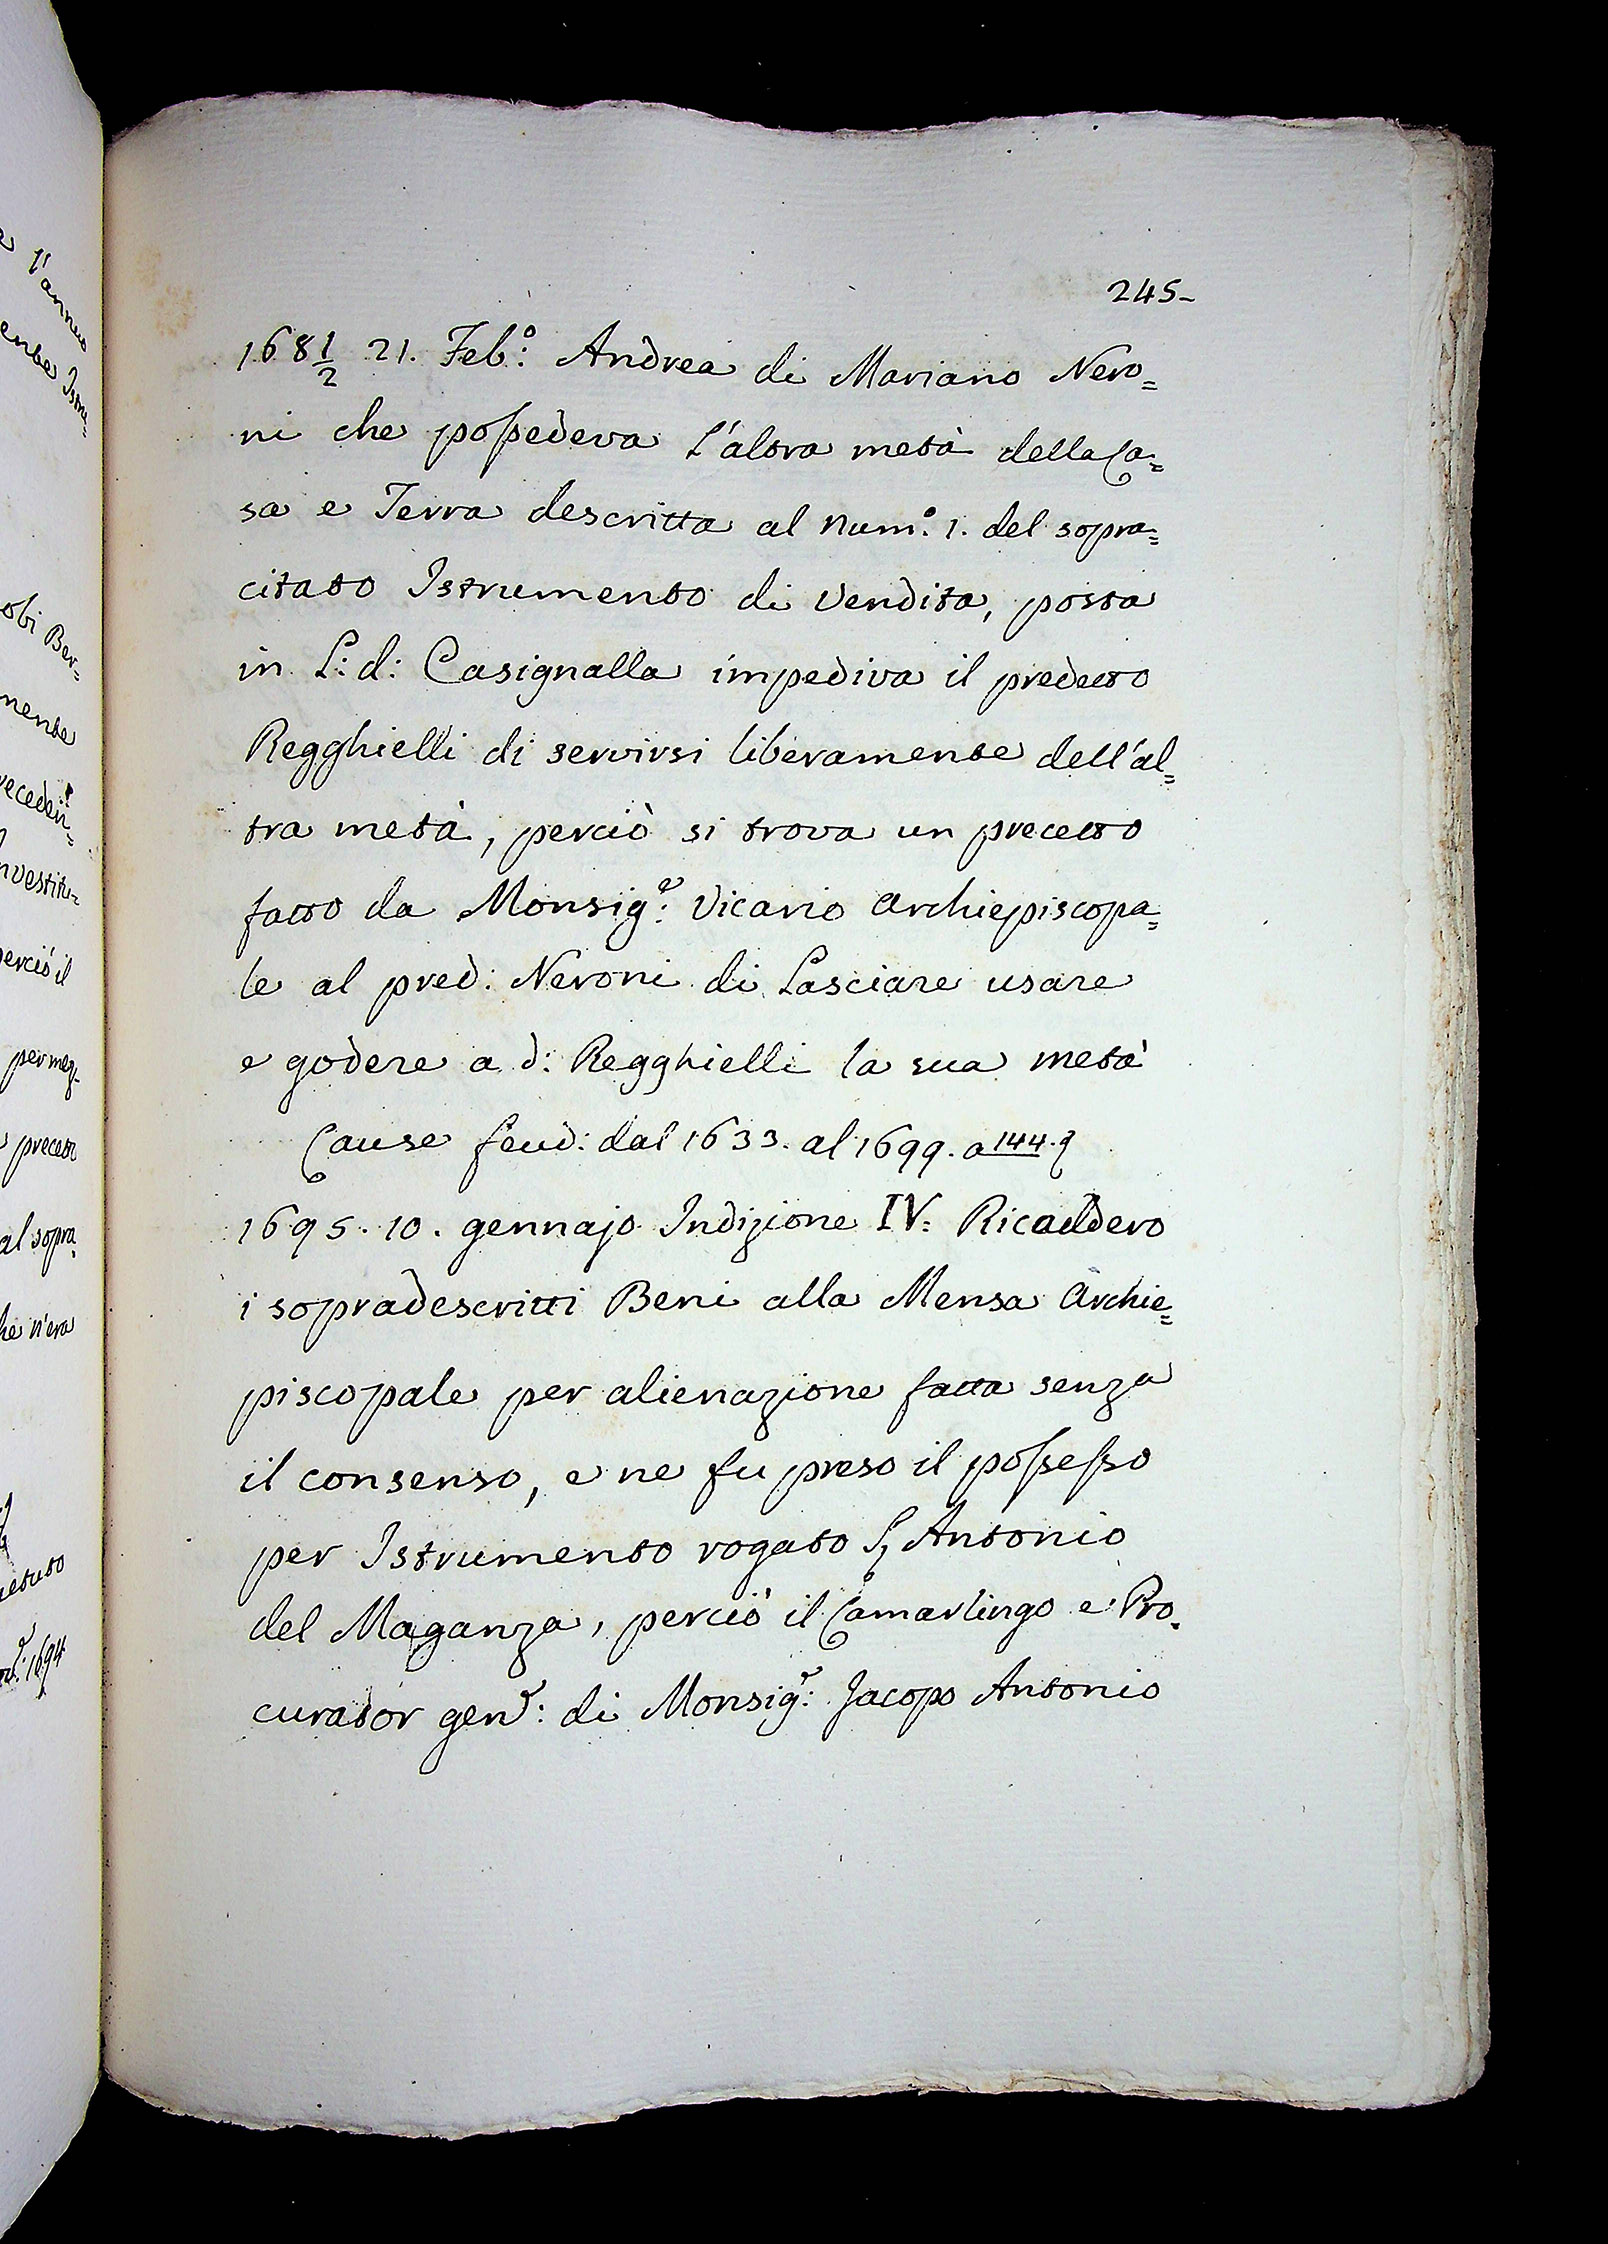 245-
168 1/2 21. Feb.º Andrea di Mariano Nero=
ni che possedeva l'altra metà della Ca=
sa e Terra descritta al num.º 1. del sopra=
citato Istrumento di vendita, posta
in L: d: Casignalla impediva il predetto
Regghielli di servirsi liberamente dell'al=
tra metà, perciò si trova un precetto
fatto da Monsig.e Vicario Archiepiscopa=
le al pred: Neroni di Lasciare usare
e godere a d: Regghielli la sua metà
Cause feud: dal 1633. al 1699. a 144.
1695. 10. gennajo Indizione IV: Ricaddero
i sopradescritti Beni alla Mensa Archie=
piscopale per alienazione fatta senza
il consenso, e ne fu preso il possesso
per Istrumento rogato S. Antonio
del Maganza, perciò il Camarlingo e Pro=
curator gen.e: di Monsig.e: Jacopo Antonio
l'annuo
obi Ber=
mente
preceden=
nvestitu=
perciò il
per meg=
precetto
al sopra=
he n'era
1694